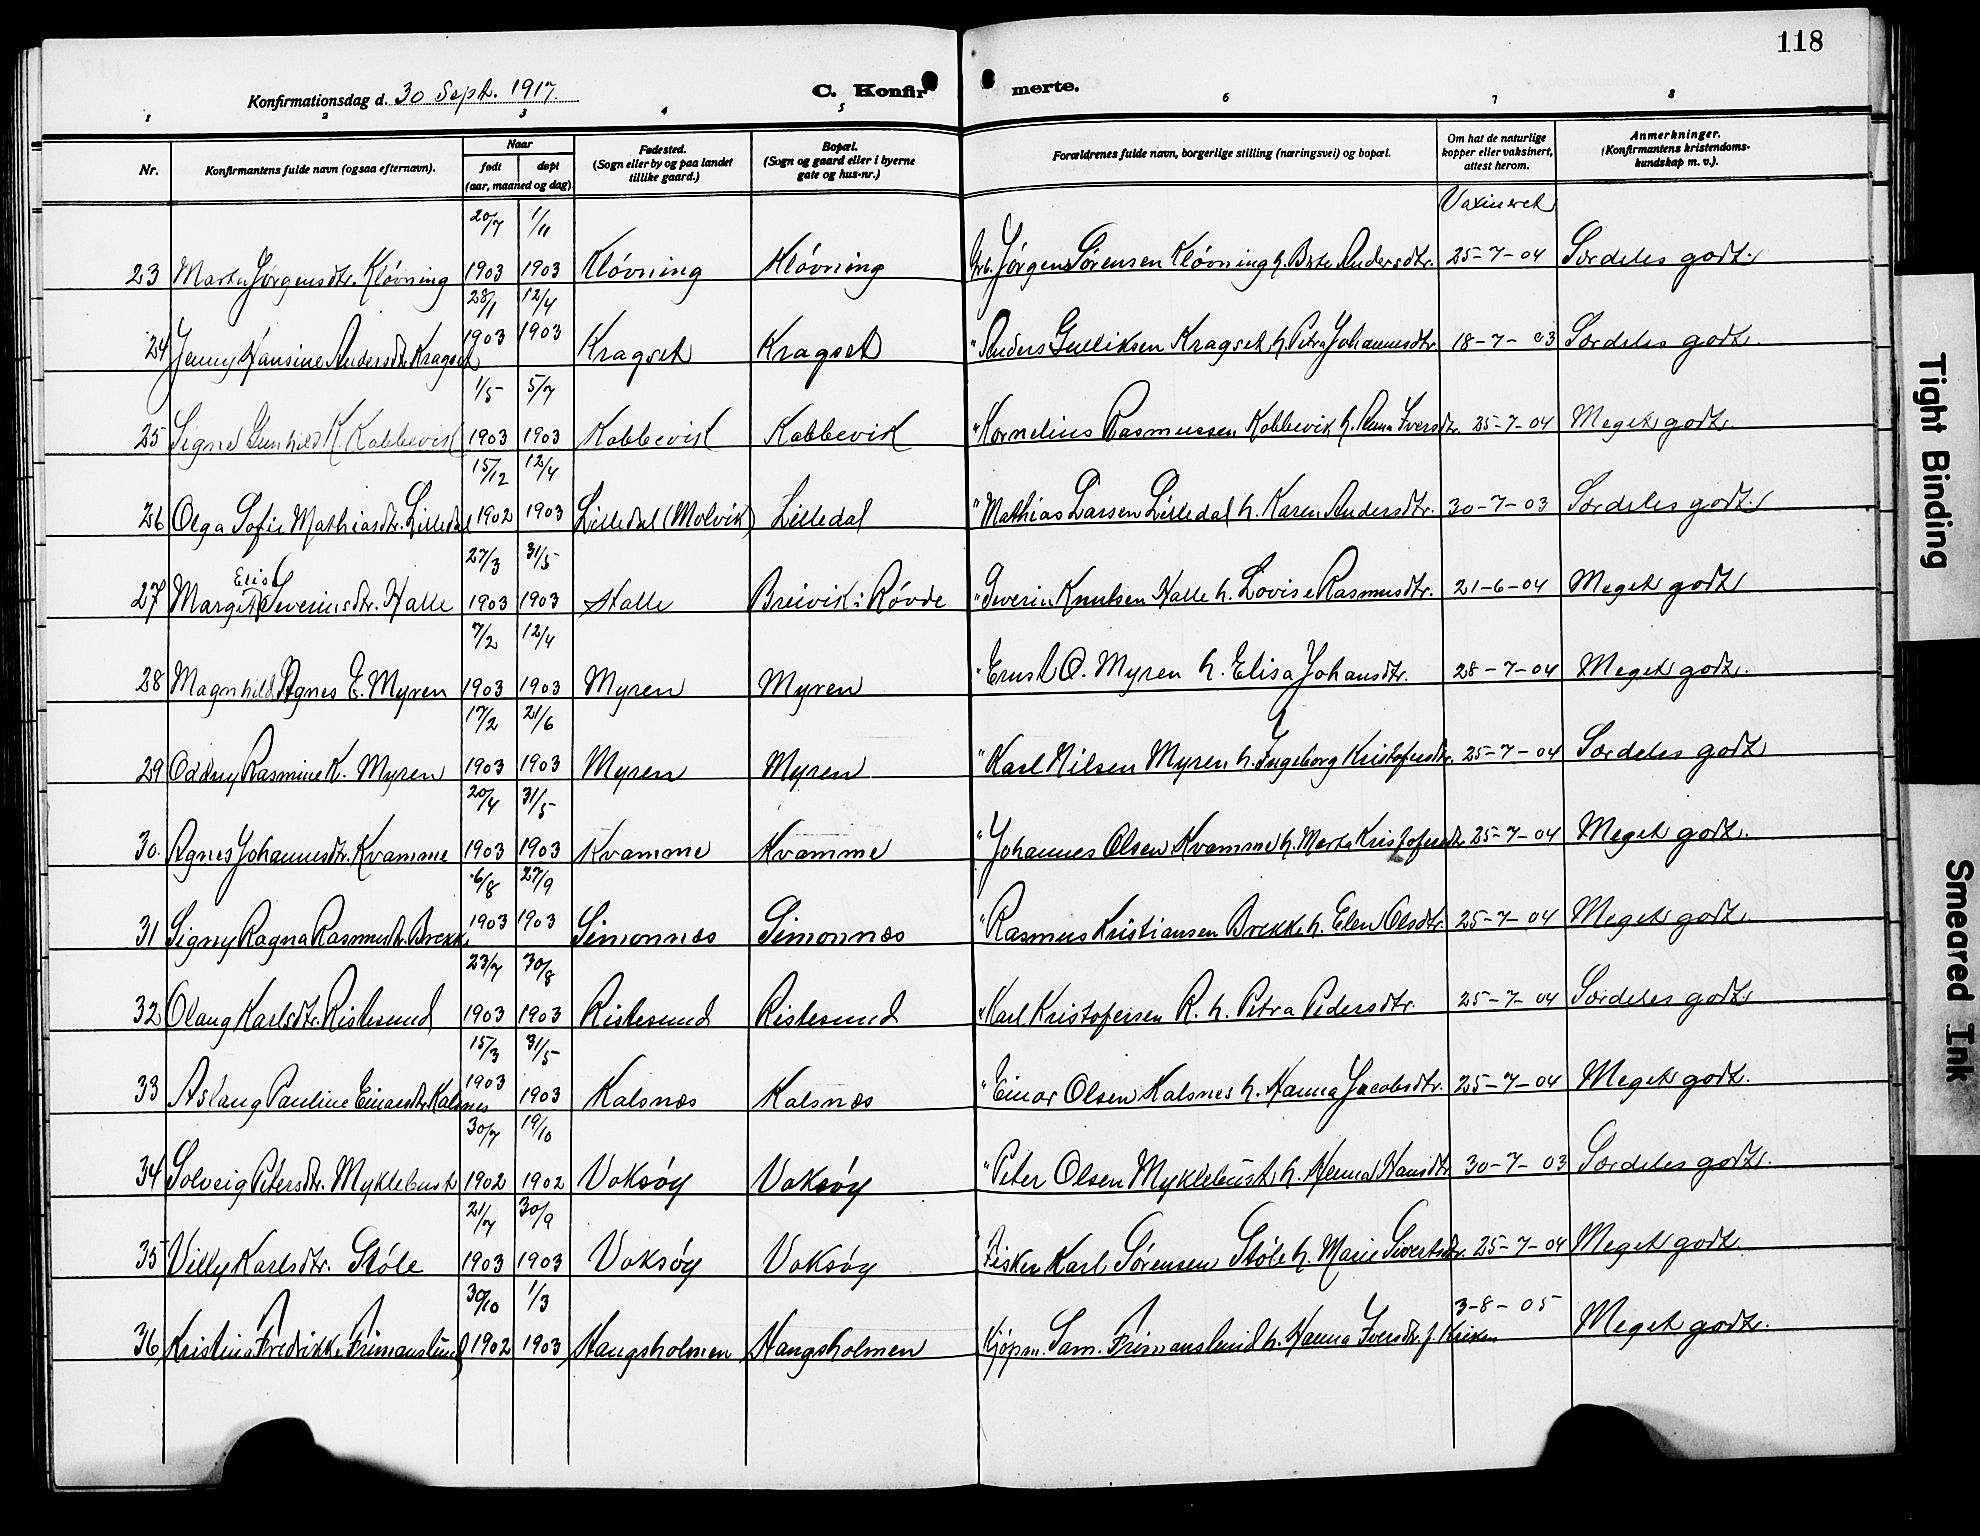 118
Konfirmationsdag d. 30 Sept. 1917.
C. Konfirmerte.
1 2 3 4 5 6 7 8
Nr.
Konfirmantens fulde navn (ogsaa efternavn).
Naar
født døpt
(aar, maaned og dag)
Fødested.
(Sogn eller by og paa landet
tillike gaard.)
Bopæl.
(Sogn og gaard eller i byerne
gate og hus-nr.)
Forældrenes fulde navn, borgerlige stilling (næringsvei) og bopæl.
Om hat de naturlige
kopper eller vaksinert,
attest herom.
Anmerkninger.
(Konfirmantens kristendoms-
kundskap m. v.).
Vaxineret
20/7 1/11
23 Marta Jørgensdtr. Kløvning 1903 1903 Kløvning Kløvning Jørgen Sørensen Kløvning h. Brte Andersdtr. 25-7-04 Særdeles godt.
28/1 12/4
24 Jenny Hansine Andersdtr. Kragset 1903 1903 Kragset Kragset " Anders Gulliksen Kragset h. Petra Johannesdtr. 18-7-03 Særdeles godt.
1/5 5/7
25 Signe Gunhild K. Kobbevik 1903 1903 Kobbevik Kobbevik " Kornelius Rasmussen Kobbevik h. Anna Iversdtr. 25-7-04 Meget godt.
15/12 12/4
26 Olga Sofie Mathiasdtr. Lilledal 1902 1903 Lilledal (Molvik) Lilledal " Mathias Larsen Lilledal h. Karen Andersdtr. 30-7-03 Særdeles godt.
27/3 31/5
Elise
27 Margit Severinsdtr. Halle 1903 1903 Halle Breivik i Røvde " Severin Knutsen Halle h. Lovise Rasmusdtr. 21-6-04 Meget godt
7/2 12/4
28 Magnhild Agnes E. Myren 1903 1903 Myren Myren " Ernst O. Myren h. Elisa Johansdtr. 28-7-04 Meget godt.
17/2 21/6
29 Oddny Rasmine K. Myren 1903 1903 Myren Myren " Karl Nilsen Myren h. Ingeborg Kristofersdtr. 25-7-04 Særdeles godt
20/4 31/5
30. Agnes Johannesdtr. Kvamme 1903 1903 Kvamme Kvamme " Johannes Olsen Kvamme h. Marta Kristofersdtr. 25-7-04 Meget godt.
6/8 27/9
31 Signy Ragna Rasmusdtr. Brekke 1903 1903 Simonnæs Simonnæs " Rasmus Kristiansen Brekke h. Elen Olsdtr. 25-7-04 Meget godt.
23/7 30/8
32 Olaug Karlsdtr. Ristesund 1903 1903 Ristesund Ristesund " Karl Kristofersen R. h. Petra Pedersdtr. 25-7-04 Særdeles godt.
15/3 31/5
33 Aslaug Pauline Einarsdtr. Kalsnes 1903 1903 Kalsnæs Kalsnæs " Einar Olsen Kalsnes h. Hanna Jacobsdtr. 25-7-04 Meget godt.
30/7 19/10
34 Solveig Petersdtr. Myklebust 1902 1902 Voksøy Voksøy " Peter Olsen Myklebust h. Hanna Hansdtr. 30-7-03 Særdeles godt.
21/7 30/9
35 Villy Karlsdtr. Støle 1903 1903 Voksøy Voksøy Fisker Karl Sørensen Støle h. Marie Sivertsdtr. 25-7-04 Meget godt.
30/10 1/3
36 Kristina Fredrikke Frimanslund 1902 1903 Haugsholmen Haugsholmen Kjøpm. Sam. Frimanslund h. Hanna Iversdtr. f. 3-8-05 Meget godt.
Tight Binding
Smeared Ink